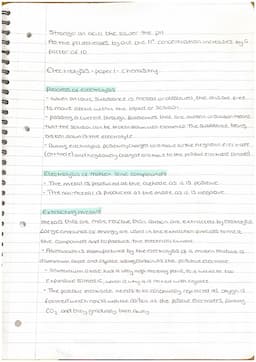 Stronger an acid, the lower the pH
As the pH decreases by one, the H⁺ concentration increases by a
factor of 10.
Electrolysis - paper 1 - chemistry
Process of electrolysis
- when an ionic substance is melted or dissolved, the ions are free
to move
- passing a current through substances that are molten or in solution means
that the solution can be broken down into elements. The substance being
broken down is the electrolyte
- During electrolysis, positively charged ions move to the negative electrode
(cathode) and negatively charged ions move to the positive electrode (anode)
Electrolysis of molten ionic compounds
- The metal is produced at the cathode as it is positive
- The non-metal is produced at the anode as it is negative
Extracting metals
metals that are more reactive than carbon are extracted by electrolysis
Large amounts of energy are used in the extraction process to melt
the compounds and to produce the
- Aluminium is manufactured by the electrolysis of a molten mixture of
aluminium oxide and cryolite using carbon as the positive electrode
- aluminium oxide has a very high melting point, so it would be too
expensive to melt it, which is why it is mixed with cryolite
- The positive electrode needs to be continually replaced as oxygen is
formed which reacts with the carbon at the positive electrode, forming
CO₂ and they gradually burn away